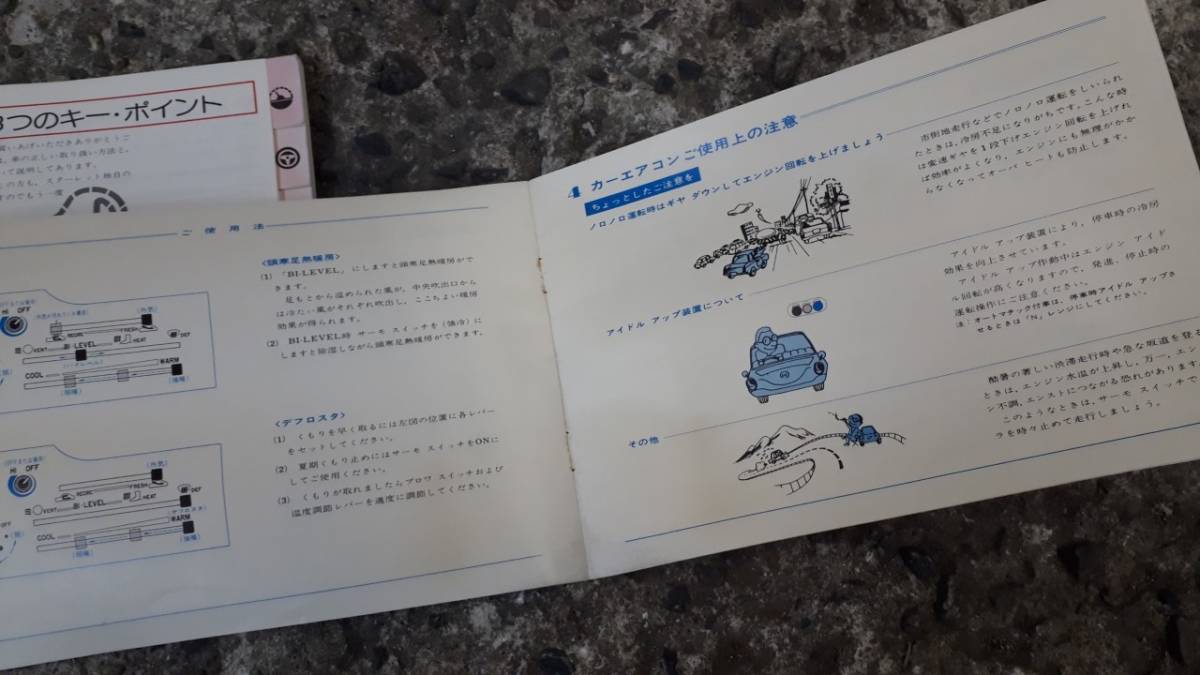 3つのキー・ポイント
買いあげいただきありがとうご
は、車の正しい取り扱い方法と、
いて説明してあります。
の方も、スターレット独自の
ご使用法
HI OFF
〈外気〉
RECIRC FRESH
VERT BI-LEVEL HEAT DEF
COOL WARM
〈強暖〉
〈頭寒足熱暖房〉
(1) 「BI-LEVEL」にしますと頭寒足熱暖房がで
きます。
足もとから温められた風が、中央吹出口から
は冷たい風がそれぞれ吹出し、ここちよい暖房
効果が得られます。
(2) BI-LEVEL時 サーモ スイッチを〈強冷〉に
しますと除湿しながら頭寒足熱暖房ができます。
HI OFF
〈外気〉
RECIRC FRESH
VERT BI-LEVEL HEAT DEF
〈デフロスタ〉
COOL WARM
〈強暖〉
〈デフロスタ〉
(1) くもりを早く取るには左図の位置に各レバー
をセットしてください。
(2) 夏期くもり止めにはサーモ スイッチをONに
してご使用ください。
(3) くもりが取れましたらブロワ スイッチおよび
温度調節レバーを適度に調節してください。
4 カーエアコンご使用上の注意
ちょっとしたご注意を
ノロノロ運転時はギヤ ダウンしてエンジン回転を上げましょう
市街地走行などでノロノロ運転をしいられ
たときは、冷房不足になりがちです。こんな時
は変速ギヤを1段下げエンジン回転を上げれ
ば効率がよくなり、エンジンにも無理がかか
らなくなってオーバ ヒートも防止します。
アイドル アップ装置について
アイドル アップ装置により、停車時の冷房
効果を向上させています。
アイドル アップ作動中はエンジン アイド
ル回転が高くなりますので、発進、停止時の
運転操作にご注意ください。
注:オートマチック付車は、停車時アイドル アップさ
せるときは「N」レンジにしてください。
その他
酷暑の著しい渋滞走行時や急な坂道を登る
ときは、エンジン水温が上昇し、万一、エン
ジン不調、エンストにつながる恐れがあります。
このようなときは、サーモ スイッチで
ラを時々止めて走行しましょう。